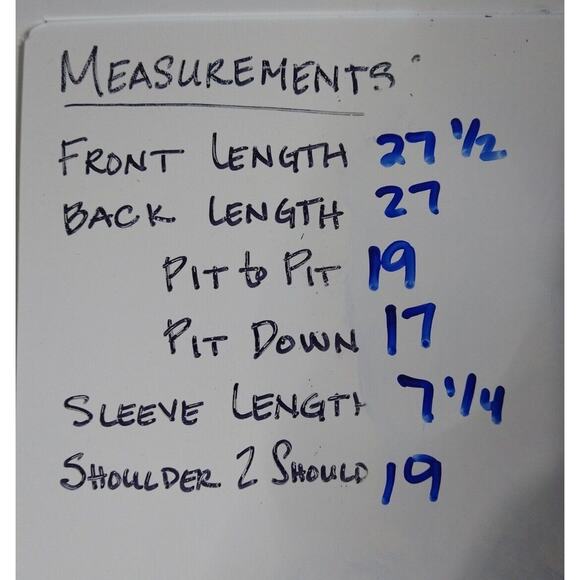 MEASUREMENTS:
FRONT LENGTH 27 1/2
BACK LENGTH 27
PIT to PIT 19
PIT DOWN 17
SLEEVE LENGTH 7 1/4
SHOULDER 2 SHOULD 19